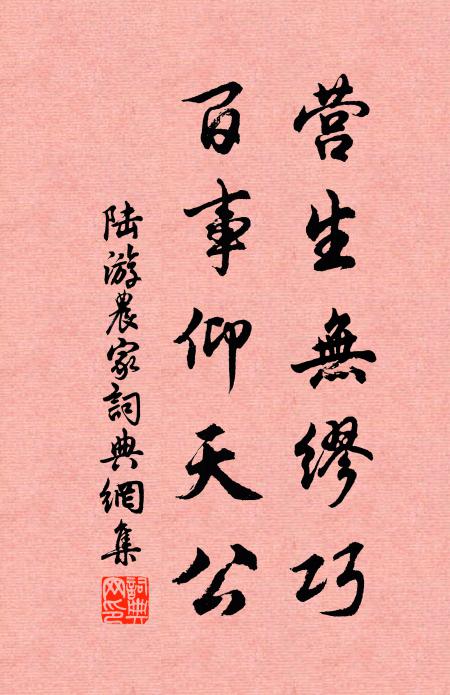 营生無缪巧
百事仰天公
陆游農家詞典網集
詞典网印